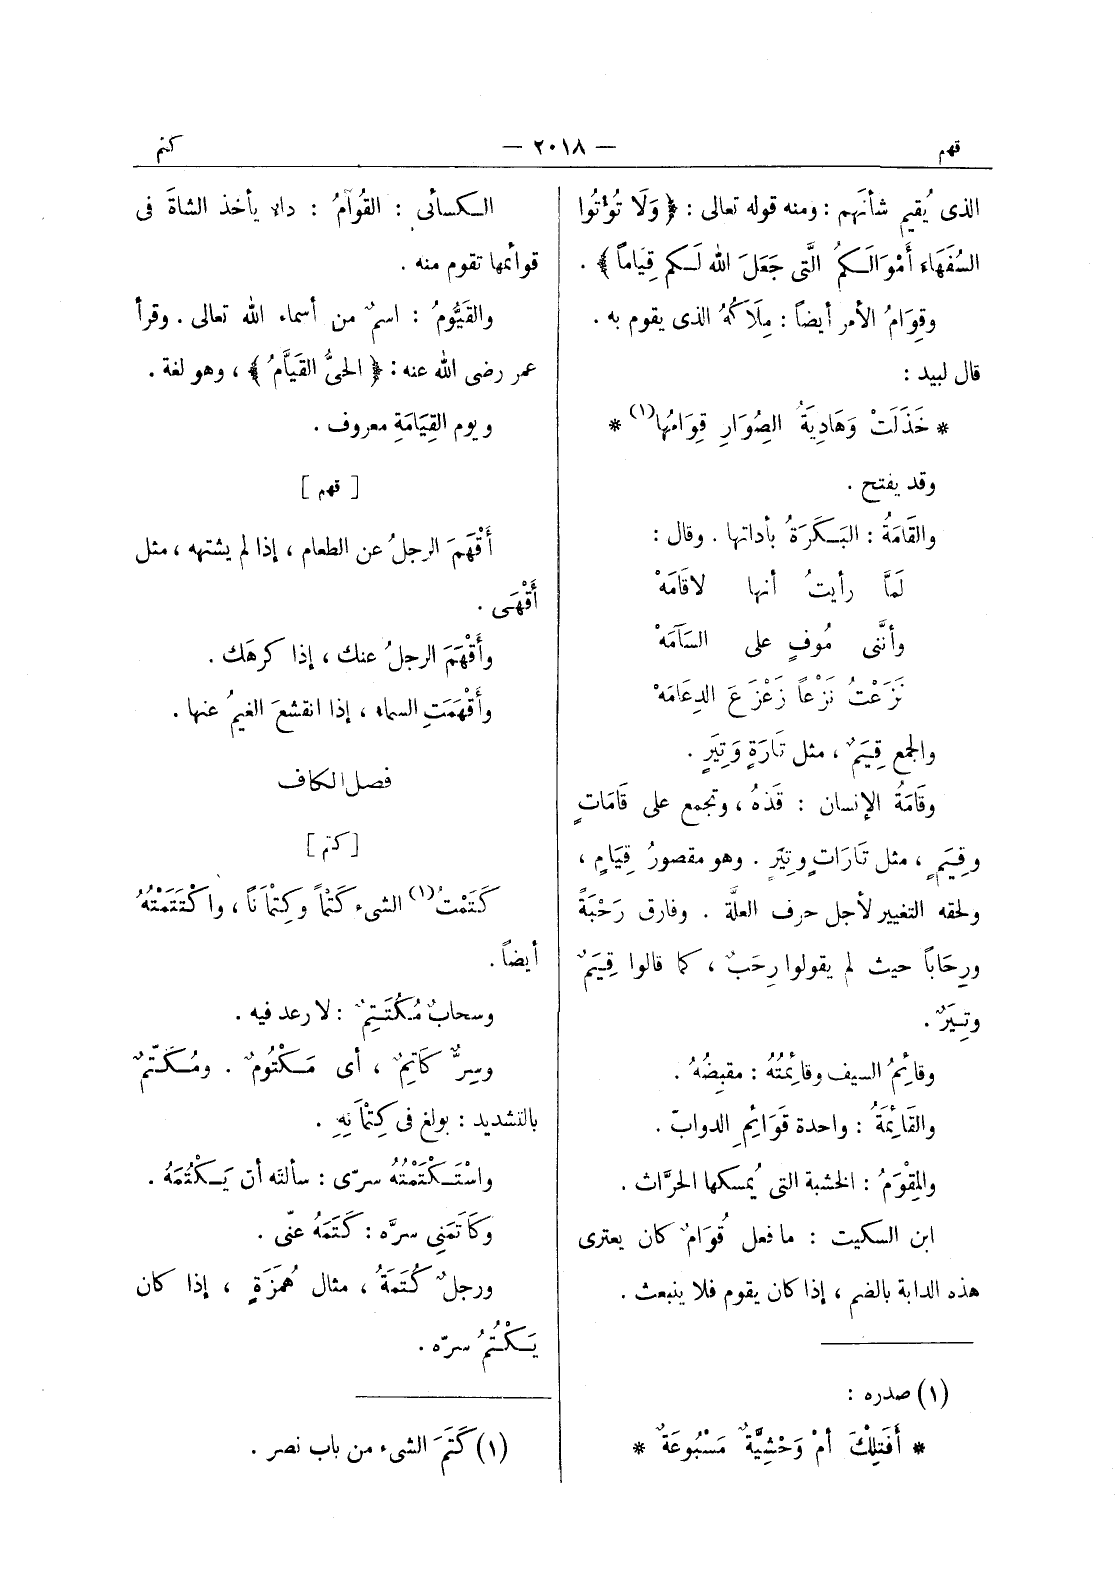 قهم — ٢٠١٨ — كتم
الذى يُقيم شأنَهم : ومنه قوله تعالى : ﴿ وَلَا تُؤتُوا
السُفَهَاء أَمْوَالَـكمُ الَّتى جَعَلَ الله لَـكم قِيَاماً ﴾ .
وقِوَامُ الأمر أيضاً : مِلَاكُهُ الذى يقوم به .
قال لبيد :
* خَذَلَتْ وَهَادِيَةُ الصِوَارِ قِوَامُها(١) *
وقد يفتح .
والقَامَةُ : البَـكَرَةُ بأداتها . وقال :
لَمَّا رأيتُ أنها لا قَامَهْ
وأنَّنى مُوفٍ على السَآمَهْ
نَزَعْتُ نَزْعاً زَعْزَعَ الدِعَامَهْ
والجمع قِيَمٌ ، مثل تَارَةٍ وَتِيَرٍ .
وقَامَةُ الإنسان : قَدّهُ ، وتجمع على قَامَاتٍ
وقِيَمٍ ، مثل تَارَاتٍ وتِيَرٍ . وهو مقصورُ قِيَامٍ ،
ولحقه التغيير لأجل حرف العلَّة . وفارق رَحْبَةً
ورِحَاباً حيث لم يقولوا رِحَبٌ ، كما قالوا قِيَمٌ
وتِـيَرٌ .
وقائِمُ السيف وقائِمَتُهُ : مقبِضُهُ .
والقَائِمَةُ : واحدة قَوَائِمِ الدوابّ .
والمِقْوَمُ : الخشبة التى يُمسكها الحرَّاث .
ابن السكيت : ما فعل قُوَامٌ كان يعترى
هذه الدابة بالضم ، إذا كان يقوم فلا ينبعث .
(١) صدره :
* أَفَتِلْكَ أمْ وَحْشِيَّةٌ مَسْبُوعَةٌ *
الـكسائى : القُوَامُ : دالا يأخذ الشاةَ فى
قوائمها تقوم منه .
والقَيَّومُ : اسمٌ من أسماء الله تعالى . وقرأ
عمر رضى الله عنه : ﴿ الحىُّ القَيَّامُ ﴾ ، وهو لغة .
ويوم القِيَامَةِ معروف .
[ قهم ]
أَقْهَمَ الرجلُ عن الطعام ، إذا لم يشتهه ، مثل
أَقْهَى .
وأَقْهَمَ الرجلُ عنك ، إذا كرهَك .
وأَقْهَمَتِ السماء ، إذا انقشعَ الغيمُ عنها .
فصل الكاف
[ كتم ]
كَتَمْتُ(١) الشىء كَتْماً وكِتْمَاناً ، واكْتَتَمْتُهُ
أيضاً .
وسحابٌ مُكْتَـتِمٌ : لا رعد فيه .
وسِرٌّ كَاتِمٌ ، أى مَـكْتُومٌ . ومُـكَـتَّمٌ
بالتشديد : بولغ فى كِتْمَانِهِ .
واسْتَـكْتَمْتُهُ سرّى : سألته أن يَـكْتُمَهُ .
وكَاتَمَنِى سرَّه : كَتَمَهُ عنّى .
ورجلٌ كُتَمَةُ ، مثال هُمَزَةٍ ، إذا كان
يَـكْـتُمُ سرّه .
(١) كَتَمَ الشىء من باب نصر .